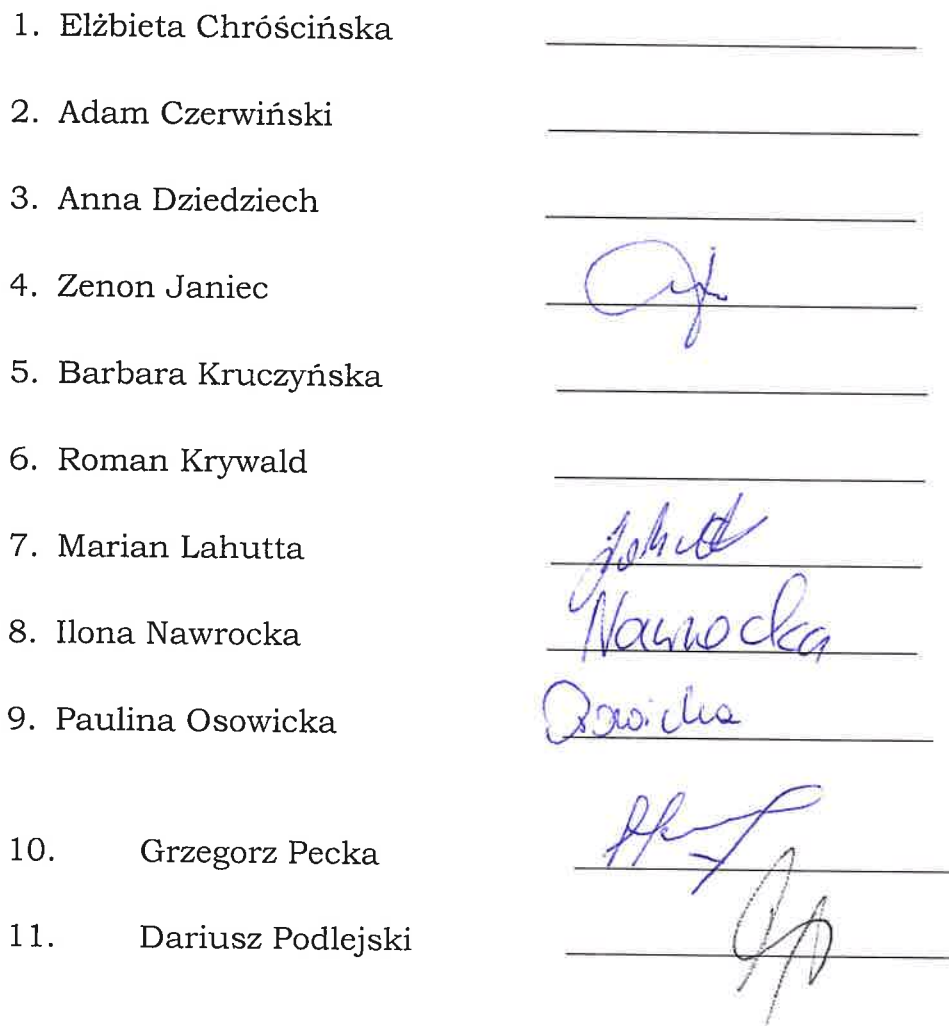 1. Elżbieta Chróścińska
2. Adam Czerwiński
3. Anna Dziedziech
4. Zenon Janiec
5. Barbara Kruczyńska
6. Roman Krywald
7. Marian Lahutta
8. Ilona Nawrocka Nawrocka
9. Paulina Osowicka Osowicka
10. Grzegorz Pecka
11. Dariusz Podlejski